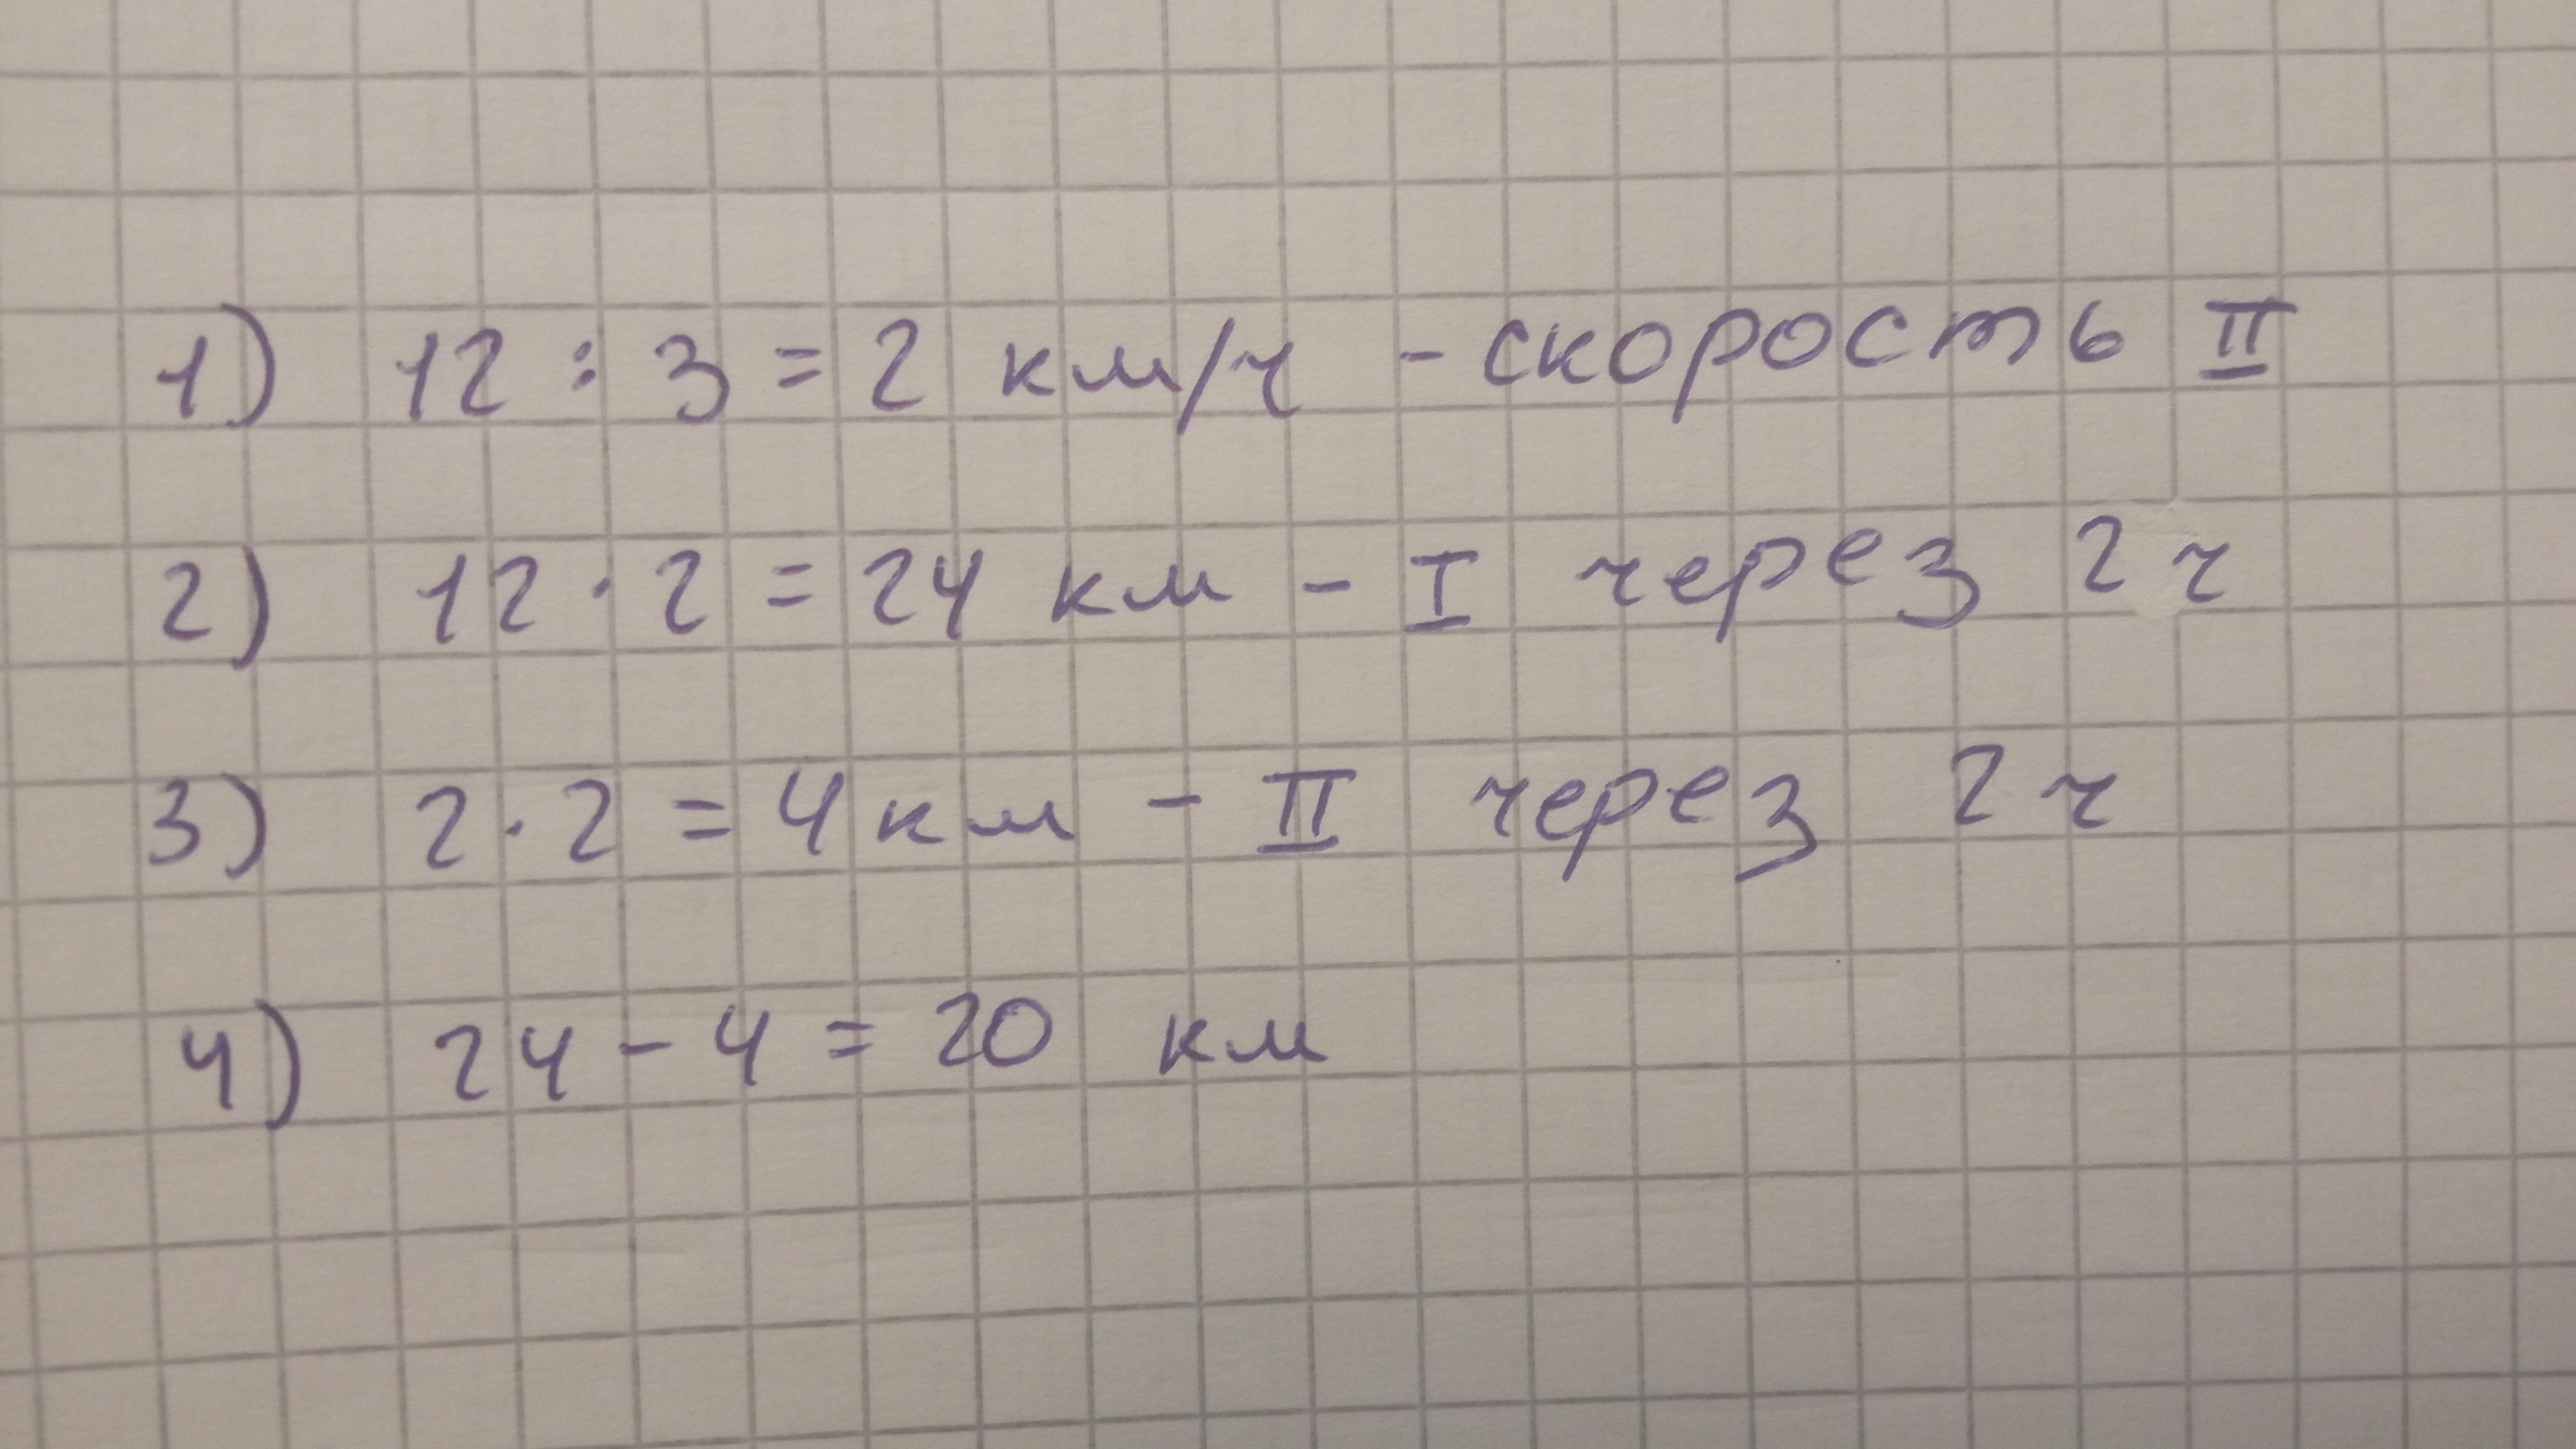 1) 12 : 3 = 2 км/ч - скорость II
2) 12 · 2 = 24 км - I через 2 ч
3) 2 · 2 = 4 км - II через 2 ч
4) 24 - 4 = 20 км